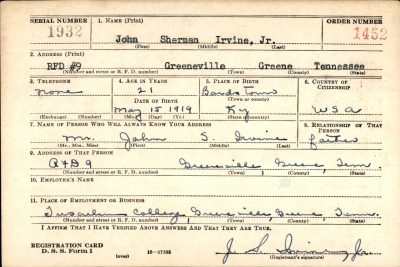 SERIAL NUMBER 1. NAME (Print) ORDER NUMBER
1932 John Sherman Irvine, Jr. 1452
(First) (Middle) (Last)
2. ADDRESS (Print)
RFD #9 Greeneville Greene Tennessee
(Number and street or R. F. D. number) (Town) (County) (State)
3. TELEPHONE 4. AGE IN YEARS 5. PLACE OF BIRTH 6. COUNTRY OF CITIZENSHIP
None 21 Bardstown
DATE OF BIRTH (Town or county)
May 15 1919 Ky. USA
(Exchange) (Number) (Mo.) (Day) (Yr.) (State or country)
7. NAME OF PERSON WHO WILL ALWAYS KNOW YOUR ADDRESS 8. RELATIONSHIP OF THAT PERSON
Mr. John S. Irvine father
(Mr., Mrs., Miss) (First) (Middle) (Last)
9. ADDRESS OF THAT PERSON
RFD 9 Greeneville Greene, Tenn.
(Number and street or R. F. D. number) (Town) (County) (State)
10. EMPLOYER'S NAME
11. PLACE OF EMPLOYMENT OR BUSINESS
Tusculum College Greeneville Greene, Tenn.
(Number and street or R. F. D. number) (Town) (County) (State)
I AFFIRM THAT I HAVE VERIFIED ABOVE ANSWERS AND THAT THEY ARE TRUE.
REGISTRATION CARD
D. S. S. Form 1 (over) 16—17105 J. S. Irvine, Jr.
(Registrant's signature)